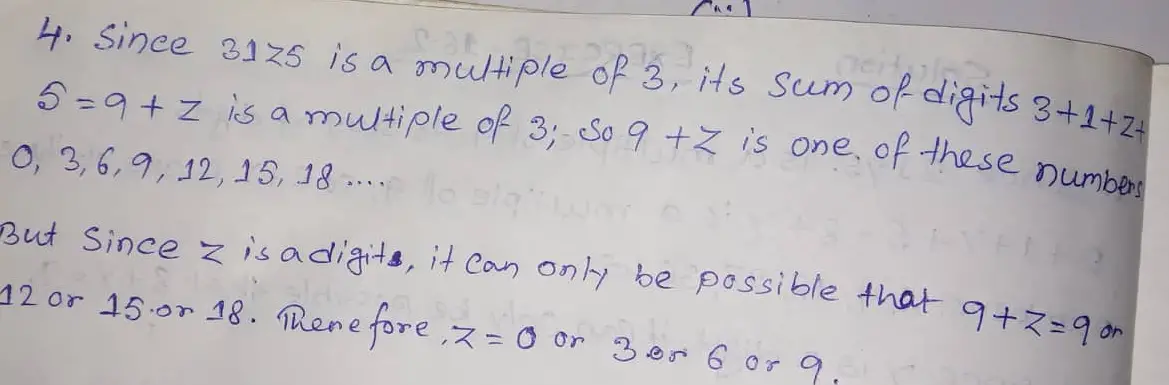 4. Since 31z5 is a multiple of 3, its sum of digits 3+1+z+
5 = 9 + z is a multiple of 3; so 9 + z is one of these numbers
0, 3, 6, 9, 12, 15, 18 ....
But since z is a digits, it can only be possible that 9+z=9 or
12 or 15 or 18. Therefore, z = 0 or 3 or 6 or 9.